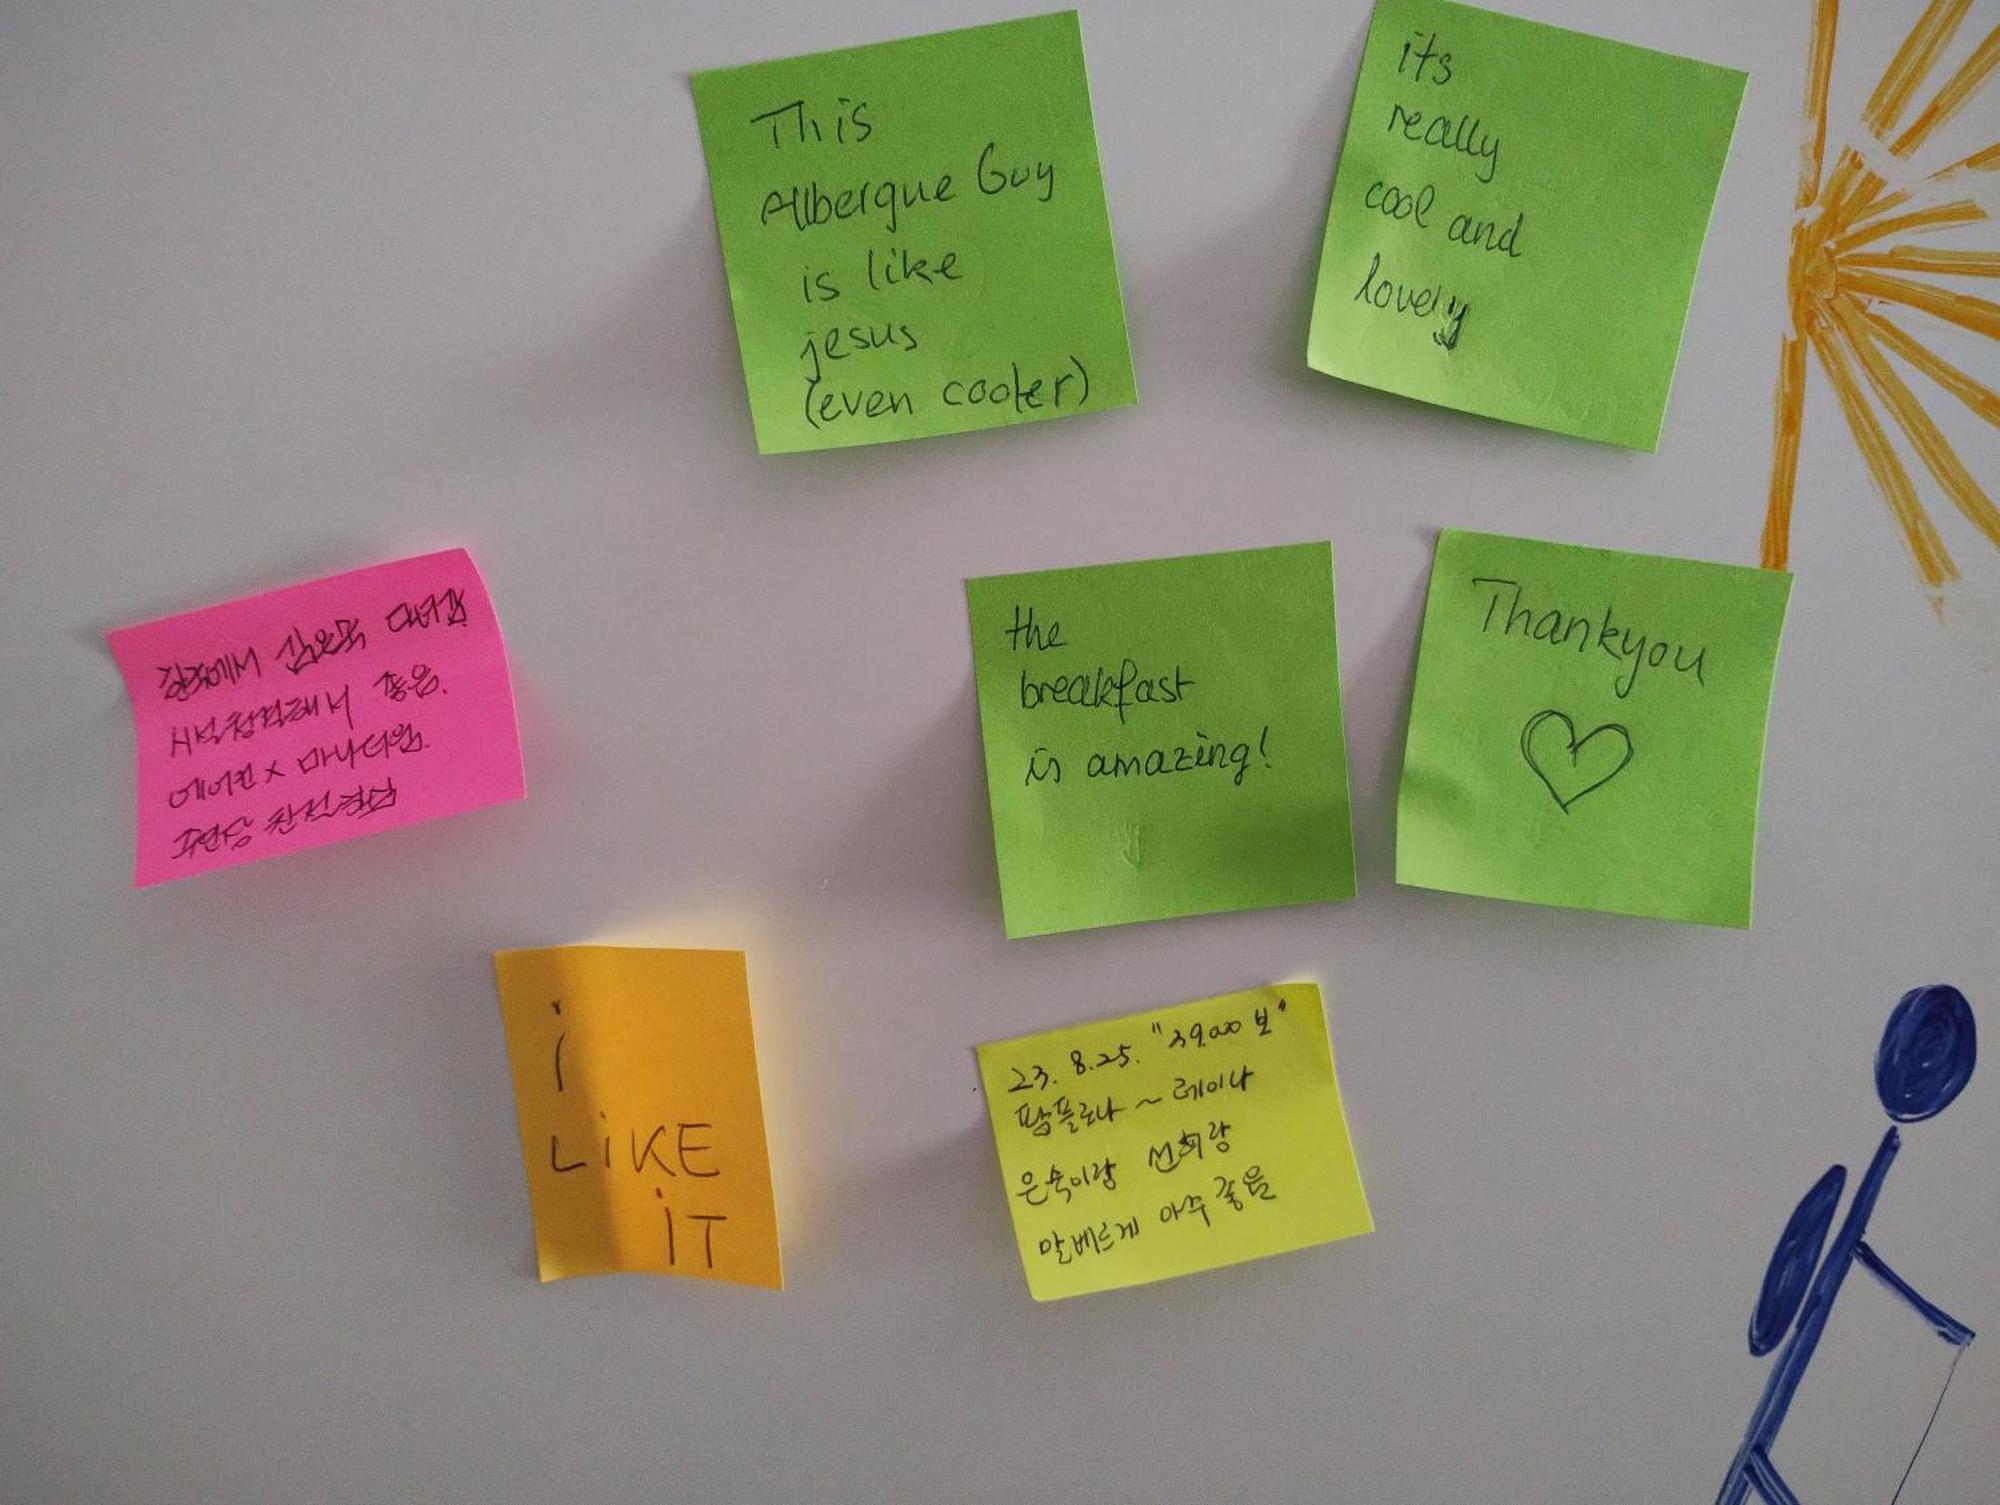 This
Albergue Guy
is like
jesus
(even cooler)
its
really
cool and
lovely
대녀감
시설청결해서 좋음.
에어컨 x 마니더움.
주헌장
the
breakfast
is amazing!
Thankyou
i
LiKE
iT
23. 8.25. "39.000 보"
팜플로나 ~ 레이나
은숙이랑 선희랑
알베르게 아주 좋음